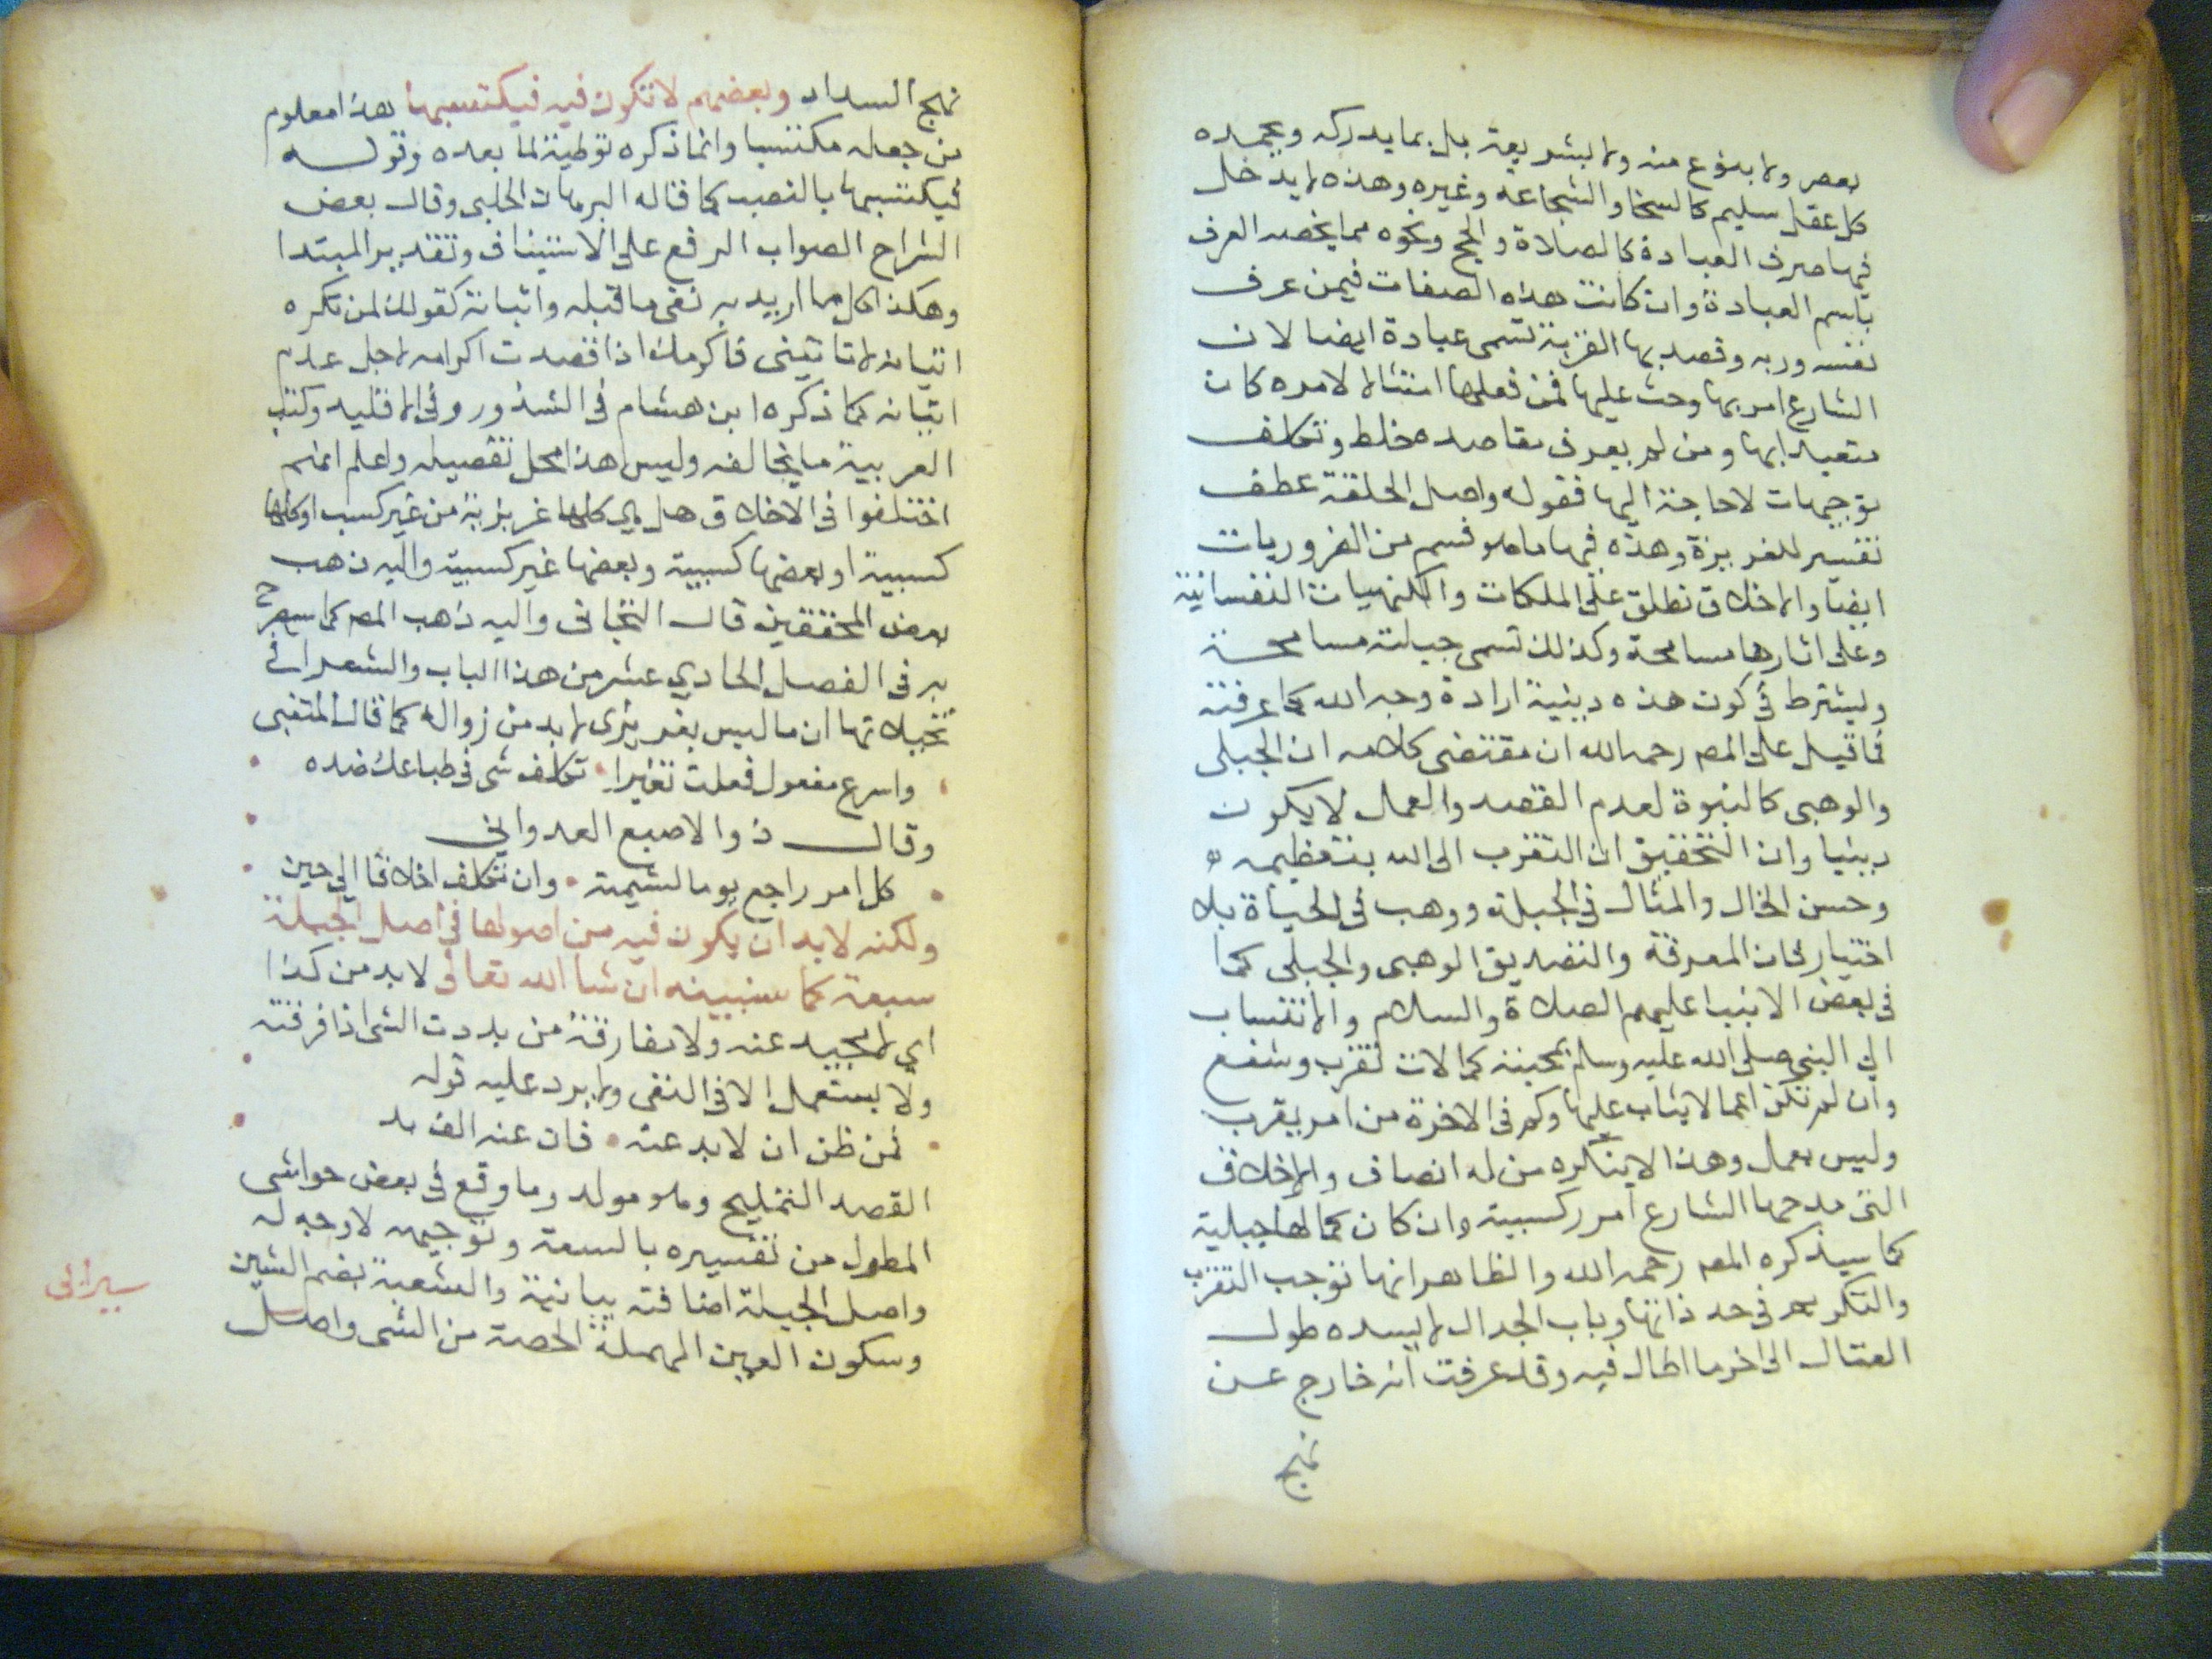 بعصر ولا بنوع منه ولا بشريعة بل بما يدركه ويحمده
كل عقل سليم كالسخا والشجاعه وغيره وهذه لا يدخل
فيها صرف العبادة كالصلاة والحج ونحوه مما يخصه العرف
باسم العبادة وان كانت هذه الصفات فيمن عرف
نفسه وربه وقصد بها القربة تسمى عبادة ايضا لان
الشارع امر بها وحث عليها فمن فعلها امتثالا لامره كان
متعبدا بها ومن لم يعرف مقاصده خلط وتكلف
توجيهات لا حاجة اليها فقوله واصل الخلقة عطف
تفسير للغريزة وهذه فيها ما هو قسم من الضروريات
ايضا والاخلاق تطلق على الملكات والكيفيات النفسانية
وعلى اثارها مسامحة وكذلك تسمى جبلة مسامحة
ويشترط في كون هذه دينية ارادة وجه الله كما عرفته
فما قيل على المص رحمه الله ان مقتضى كلامه ان الجبلي
والوهبي كالنبوة لعدم القصد والعمل لا يكون
دينيا وان التحقيق ان التقرب الى الله بتعظيمه
وحسن الخال والمثال في الجبلة ووهب في الحياة بلا
اختيار لحان المعرفة والتصديق الوهبي والجبلي كما
في بعض الانبيا عليهم الصلاة والسلام والانتساب
الي النبي صلى الله عليه وسلم بمحبته كمالات تقرب وشفع
وان لم تكن اعمالا يثاب عليها وكم في الاخرة من امر يقرب
وليس بعمل وهذا لا ينكره من له انصاف والاخلاق
التي مدحها الشارع امر كسبية وان كان كمالها جبلية
كما سيذكره المص رحمه الله والظاهر انها توجب التقرب
والتكريم في حد ذاتها وباب الجدال لا يسده طول
المقال الى اخر ما اطال فيه وقد عرفت انه خارج عن
نهج
نهج السداد وبعضهم لا تكون فيه فيكتسبها هذا معلوم
من جعله مكتسبا وانما ذكره توطية لما بعده وقوله
فيكتسبها بالنصب كما قاله البرهان الحلبي وقال بعض
الشراح الصواب الرفع على الاستيناف وتقدير المبتدا
وهكذا كل ما اريد به نفي ما قبله واثباته كقولك لمن تكره
اتيانه لا تاتيني فاكرمك اذا قصدت اكرامه لاجل عدم
اتيانه كما ذكره ابن هشام في الشذور وفي الاقليد وكتب
العربية ما يخالفه وليس هذا محل تفصيله واعلم انهم
اختلفوا في الاخلاق هل هي كلها غريزية من غير كسب او كلها
كسبية او بعضها كسبية وبعضها غير كسبية واليه ذهب
بعض المحققين قال التجاني واليه ذهب المص كما سيصرح
به في الفصل الحادي عشر من هذا الباب والشعرا في
تخيلاتها ان ما ليس بغريزي لا بد من زواله كما قال المتنبي
واسرع مفعول فعلت تغيرا تكلف شي في طباعك ضده
وقال ذو الاصبع العدواني
كل امر راجع يوما لشيمته وان تكلف اخلاقا الي حين
ولكنه لا بد ان يكون فيه من اصولها في اصل الجبلة
سبعة كما سنبينه ان شا الله تعالى لا بد من كذا
اي لا محيد عنه ولا مفارقة من بددت الشي اذا فرقته
ولا يستعمل الا في النفي ولا يرد عليه قوله
فمن ظن ان لا بد عنه فان عنه الف بد
القصد التمليح وهو مولد وما وقع في بعض حواشي
المطول من تفسيره بالسعة وتوجيهه لا وجه له
واصل الجبلة اضافته بيانية والشعبة بضم الشين
وسكون العين المهملة الحصة من الشي واصل